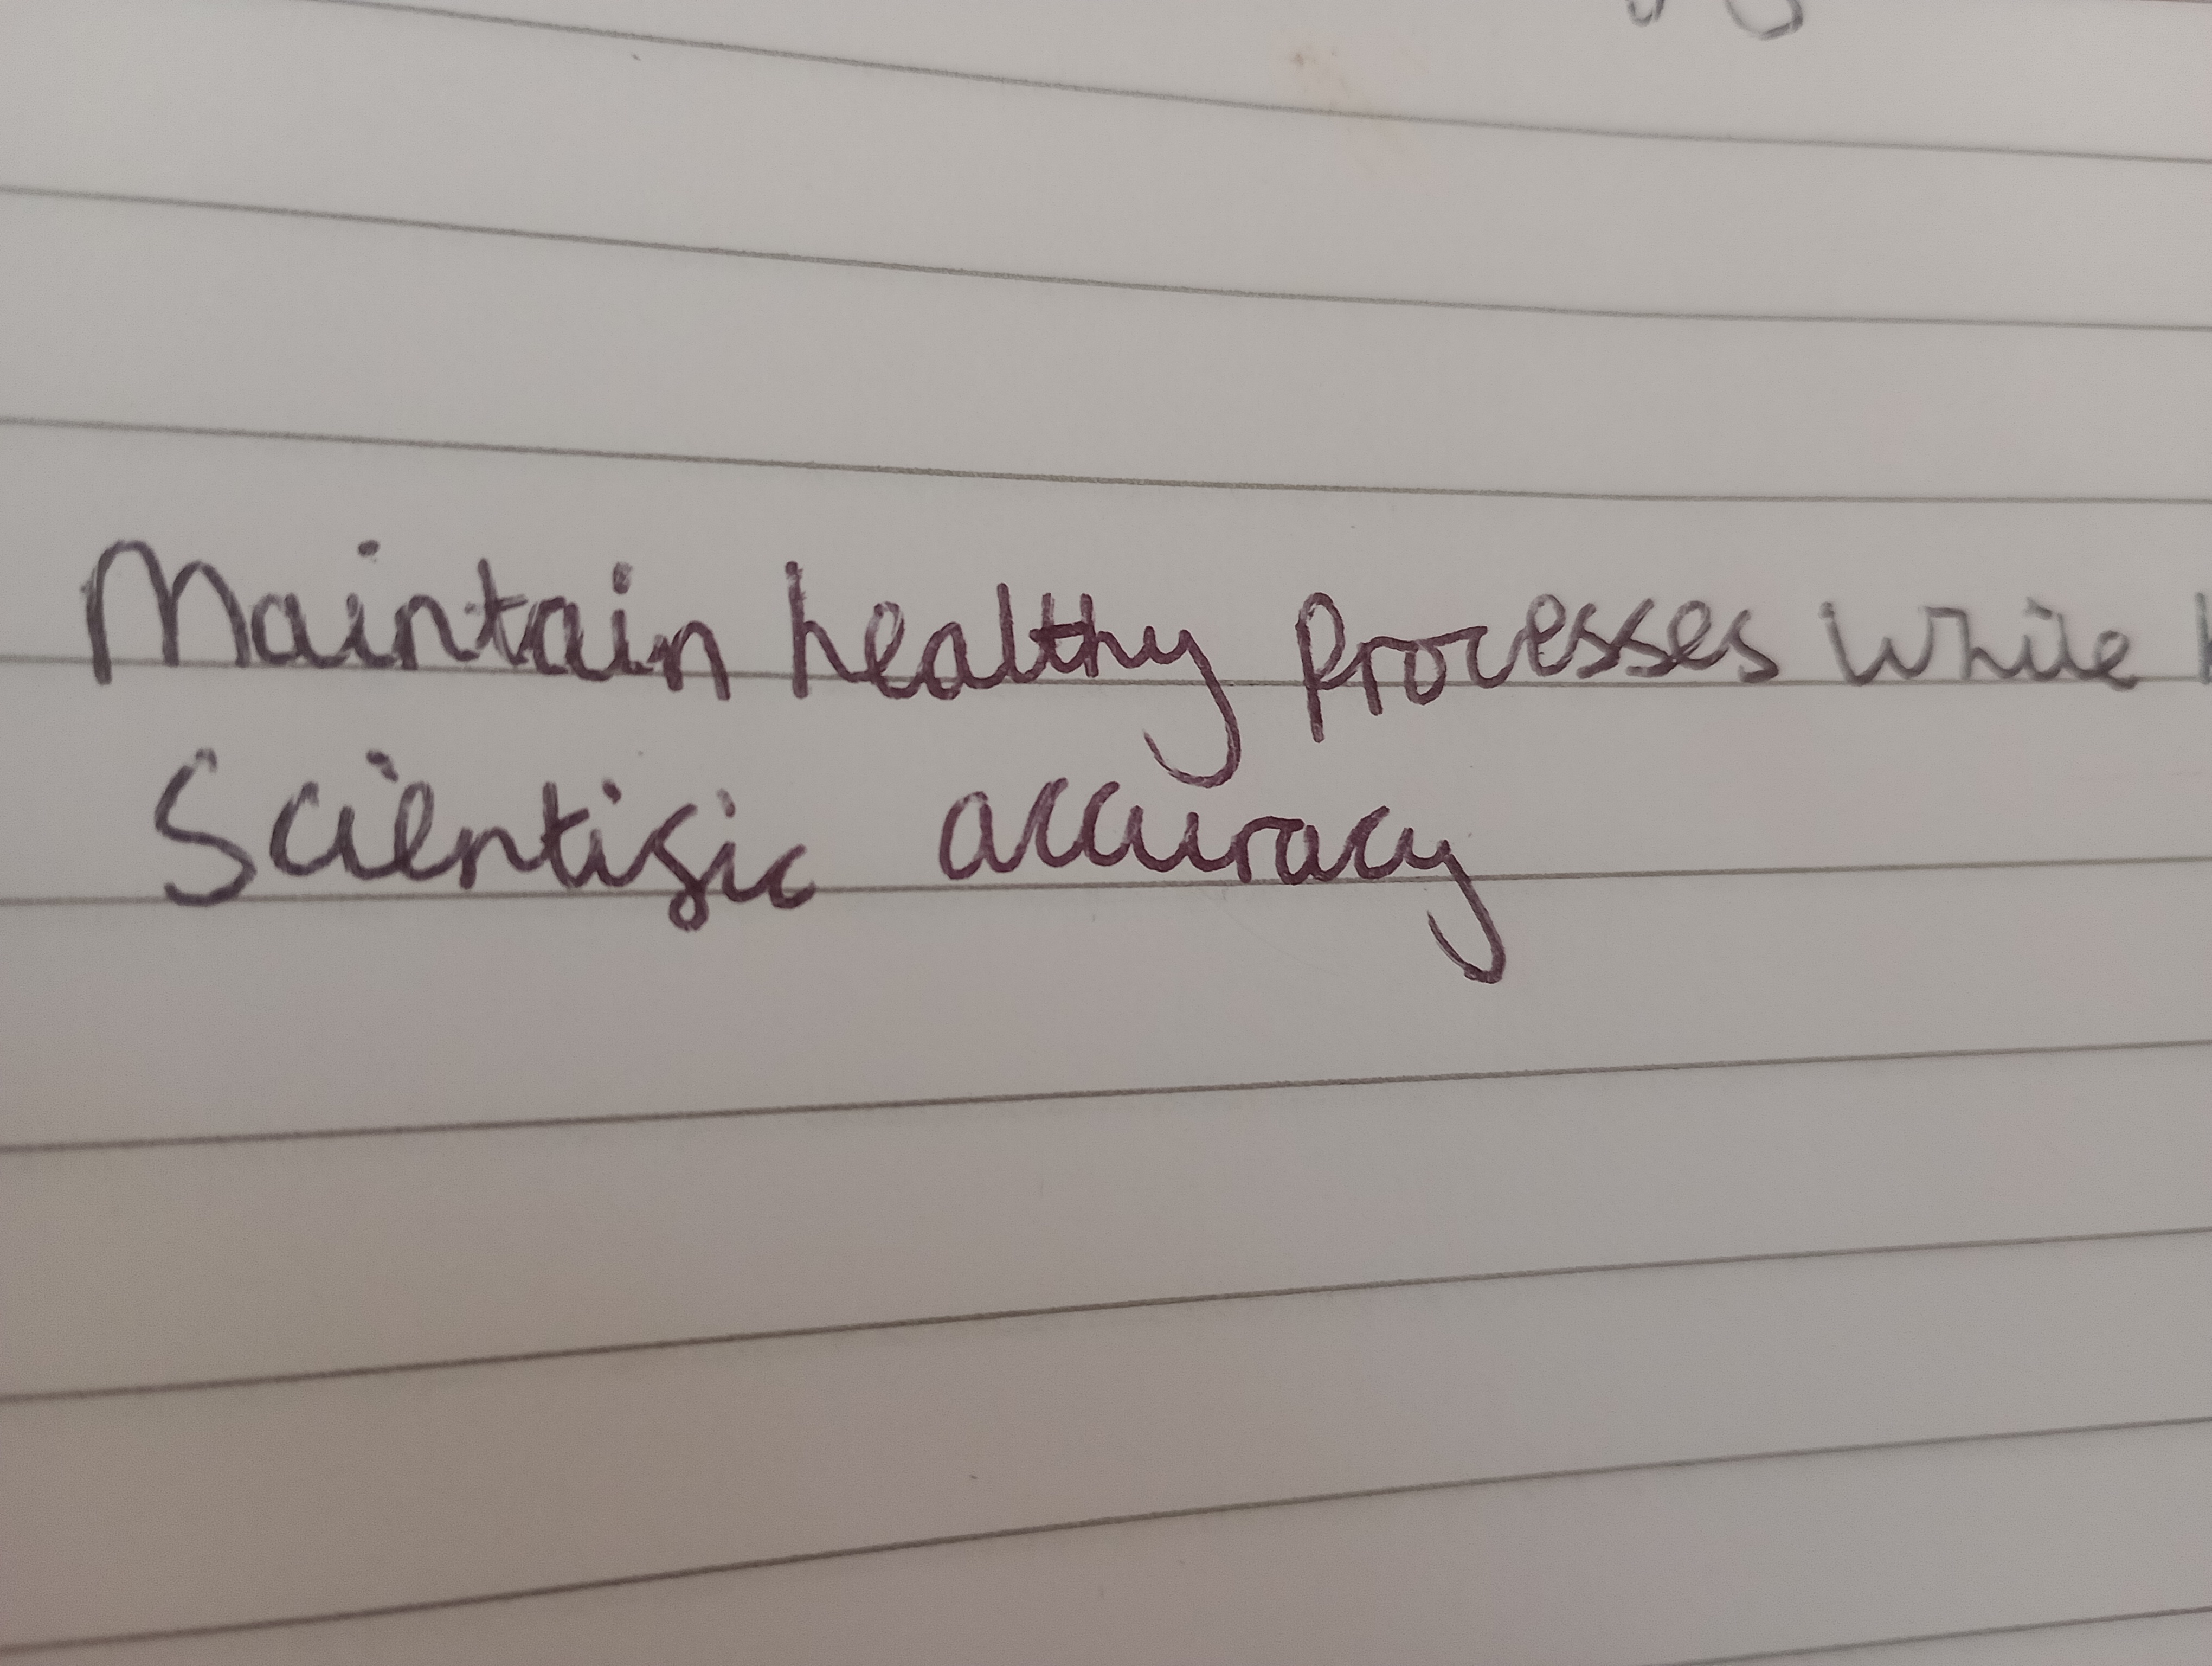 Maintain healthy processes while
Scientific accuracy